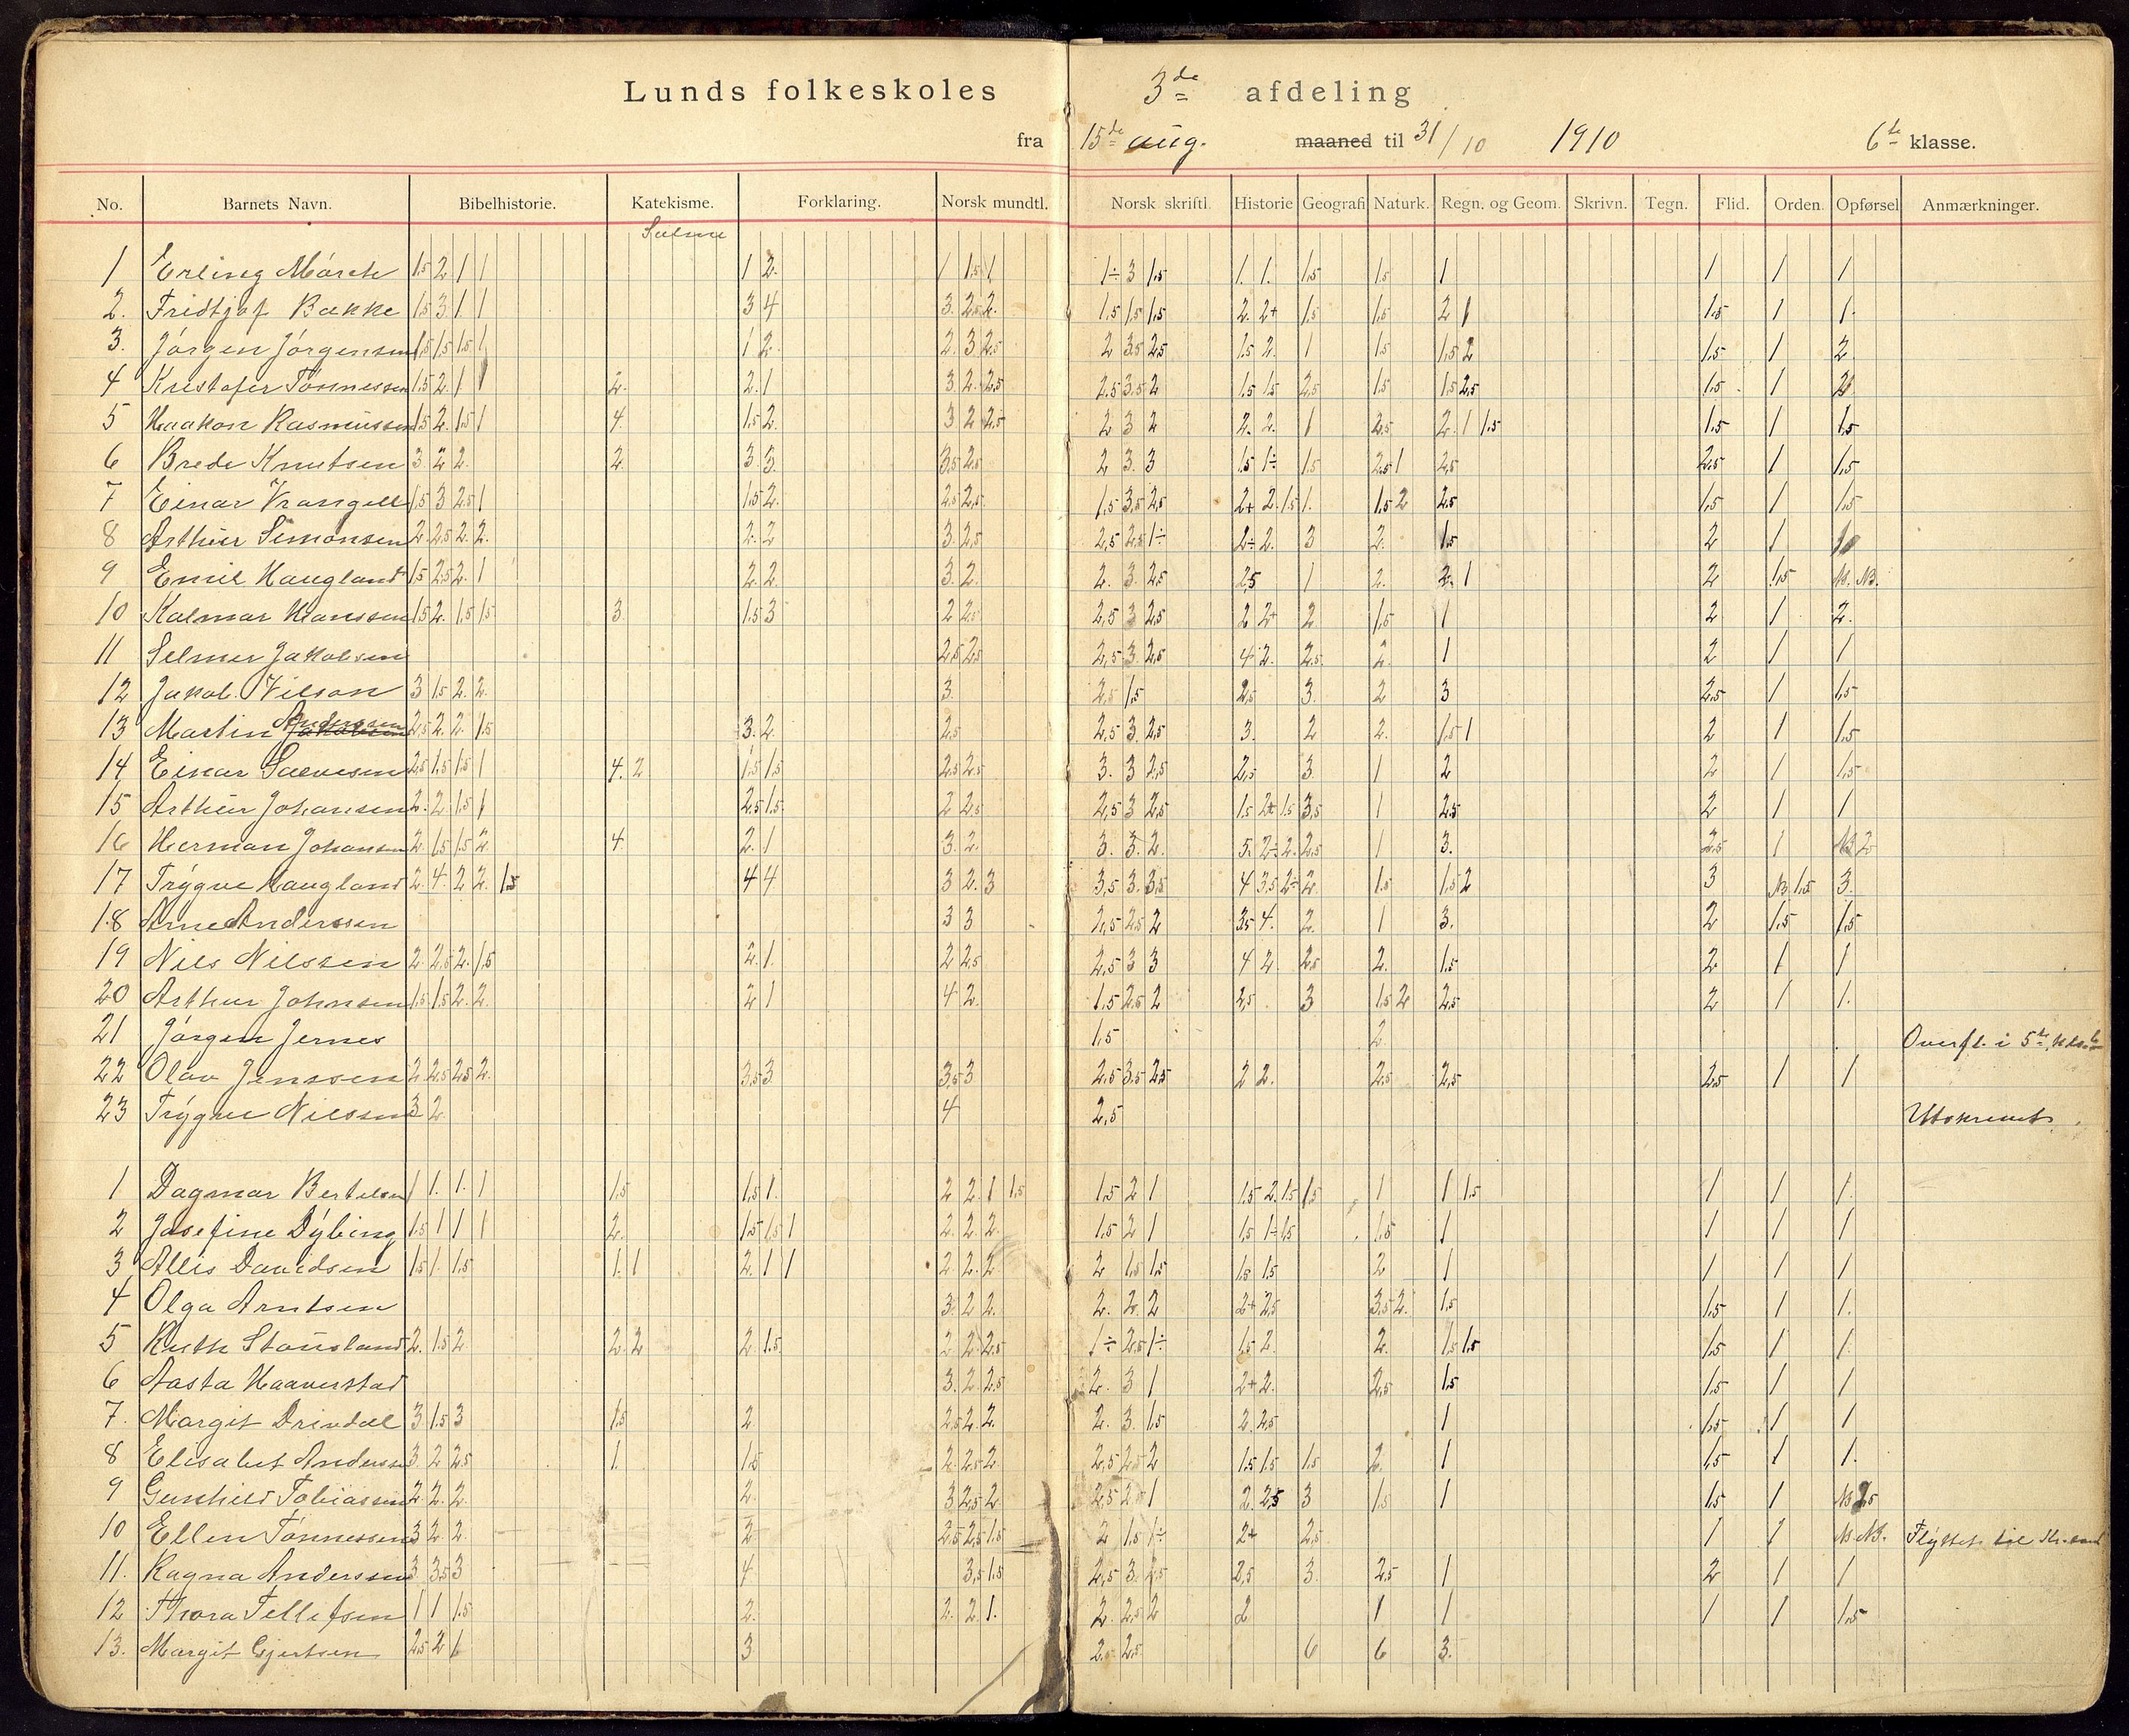 Lunds folkeskoles 3de afdeling
fra 15de aug. maaned til 31/10 1910 6te klasse.
No. Barnets Navn. Bibelhistorie. Katekisme. Forklaring. Norsk mundtl. Norsk skriftl. Historie Geografi Naturk. Regn. og Geom. Skrivn. Tegn. Flid. Orden. Opførsel Anmærkninger.
Salme
1 Erling Mörch 1.5 2 1 1 1 2. 1 1.5 1 1÷ 3 1.5 1. 1. 1.5 1.5 1 1 1 1
2. Fridtjof Bakke 1.5 3. 1. 1 3 4 3. 2.5 2. 1.5 1.5 1.5 2. 2+ 1.5 1.5 2 1 1.5 1 1.
3. Jörgen Jörgensen 1.5 1.5 1.5 1 1 2. 2. 3. 2.5 2 3.5 2.5 1.5 2. 1 1.5 1.5 2 1.5 1 2
4 Kristofer Tönnessen 1.5 2. 1 1 2. 2. 1 3. 2. 2.5 2.5 3.5 2 1.5 1.5 2.5 1.5 1.5 2.5 1.5 1 2
5 Haakon Rasmussen 1.5 2. 1.5 1 4. 1.5 2. 3 2 2.5 2 3 2 2. 2. 1 2.5 2. 1 1.5 1.5 1 1.5
6 Brede Knutsen 3. 2 2. 2. 3. 3. 3.5 2.5 2 3. 3 1.5 1÷ 1.5 2.5 1 2.5 2.5 1 1.5
7 Einar Vrangell 1.5 3 2.5 1 1.5 2. 2.5 2.5 1.5 3.5 2.5 2+ 2. 1.5 1. 1.5 2 2.5 1.5 1 1.5
8 Arthur Simonsen 2. 2.5 2. 2. 2. 2 3. 2.5 2.5 2.5 1÷ 2÷ 2. 3 2. 1.5 2 1
9 Emil Haugland 1.5 2.5 2. 1 2. 2. 3. 2. 2. 3. 2.5 2.5 1 2. 2. 1 2 1.5
10 Kalmar Hanssen 1.5 2. 1.5 1.5 3 1.5 3 2 2.5 2.5 3 2.5 2 2+ 2 1.5 1 2 1 2.
11 Selmer Jakobsen 2.5 2.5 2.5 3. 2.5 4 2. 2.5 2. 1 2 1 1
12 Jakob Vilson 3 1.5 2. 2. 3. 2.5 1.5 2.5 3. 2 3 2.5 1 1.5
13 Martin Anderssen 2.5 2. 2. 1.5 3. 2. 2.5 2.5 3. 2.5 3. 2 2. 1.5 1 2 1 1.5
14 Einar Salvesen 2.5 1.5 1.5 1 4. 2 1.5 1.5 2.5 2.5 3. 3 2.5 2.5 3. 1 2 2 1 1.5
15 Arthur Johansen 2. 2 1.5 1 2.5 1.5 2 2.5 2.5 3 2.5 1.5 2+ 1.5 3.5 1 2.5 2 1 1
16 Herman Johansen 2. 1.5 1.5 2 4. 2. 1 3. 2. 3. 3. 2. 5. 2÷ 2. 2.5 1 3. 2.5 1 NB 2
17 Trygve Haugland 2. 4. 2 2. 1.5 4 4 3 2. 3 3.5 3. 3.5 4 3.5 2÷ 2. 1.5 1.5 2 3 N. 1.5 3.
18 Arne Anderssen 3 3 2.5 2.5 2 3.5 4. 2. 1 3. 2 1.5 1.5
19 Nils Nilssen 2. 2.5 2. 1.5 2. 1. 2 2.5 2.5 3 3 4 2. 2.5 2. 1.5 2. 1 1
20 Arthur Johnsen 1.5 1.5 2. 2. 2 1 4 2. 1.5 2.5 2 2.5 3 1.5 2 2.5 2 1 1.
21 Jörgen Jernes 1.5 2.
22 Olav Jenssen 2. 2.5 2.5 2. 3.5 3 3.5 3 2.5 3.5 2.5 2 2. 2.5 2.5 2.5 1 1
23 Trygve Nilssen 3 2. 4 2.5 Utskrevet.
1 Dagmar Bertelsen 1 1. 1. 1 1.5 1.5 1. 2 2. 1 1.5 1.5 2 1 1.5 2. 1.5 1.5 1 1 1.5 1 1 1.
2 Josefine Dybing 1.5 1 1 1 2. 1.5 1.5 1 2. 2. 2. 1.5 2 1 1.5 1÷ 1.5 1.5 1 1 1 1
3 Allis Davidsen 1.5 1. 1.5 1. 1 2. 1 1 2. 2. 2 2 1.5 1.5 1.5 1.5 2 1 1 1 1
4 Olga Arntsen 3. 2 2. 2. 2. 2 2+ 2.5 3.5 2. 1.5 1.5 1 1.
5 Ruth Stousland 2. 1.5 2 2. 2 2 1.5 2 2. 2.5 1÷ 2.5 1÷ 1.5 2. 2. 1.5 1.5 1.5 1 1
6 Aasta Haaverstad 3. 2. 2.5 2. 3 1 2+ 2. 2.5 1.5 1.5 1 1
7. Margit Drivdal 3 1.5 3 1.5 2 2.5 2. 2. 2. 3. 1.5 2. 2.5 1 1.5 1 1
8 Elisabet Anderssen 3 2 2.5 1. 1.5 2. 2.5 2 2.5 2.5 2 1.5 1.5 1.5 2. 1 1.5 1 1.
9 Gunhild Tobiassen 2. 2. 2 2. 3 2.5 2 2.5 2.5 1 2. 2.5 3 1.5 1 1.5 1
10 Ellen Tönnessen 3 2 2 2 2.5 2.5 1.5 2 1.5 1÷ 2+ 2.5 1 1 Flyttet til
11. Ragna Anderssen 3 3.5 3 4 3.5 1.5 2.5 3. 2.5 3. 2.5 1 2 1 1
12 Thora Tellefsen 1 1 1.5 2. 2. 2 1. 2. 2.5 2 2 1 1 1 1 1.5
13. Margit Gjertsen 2.5 2 6 3 2.5 2.5 6 6 3.